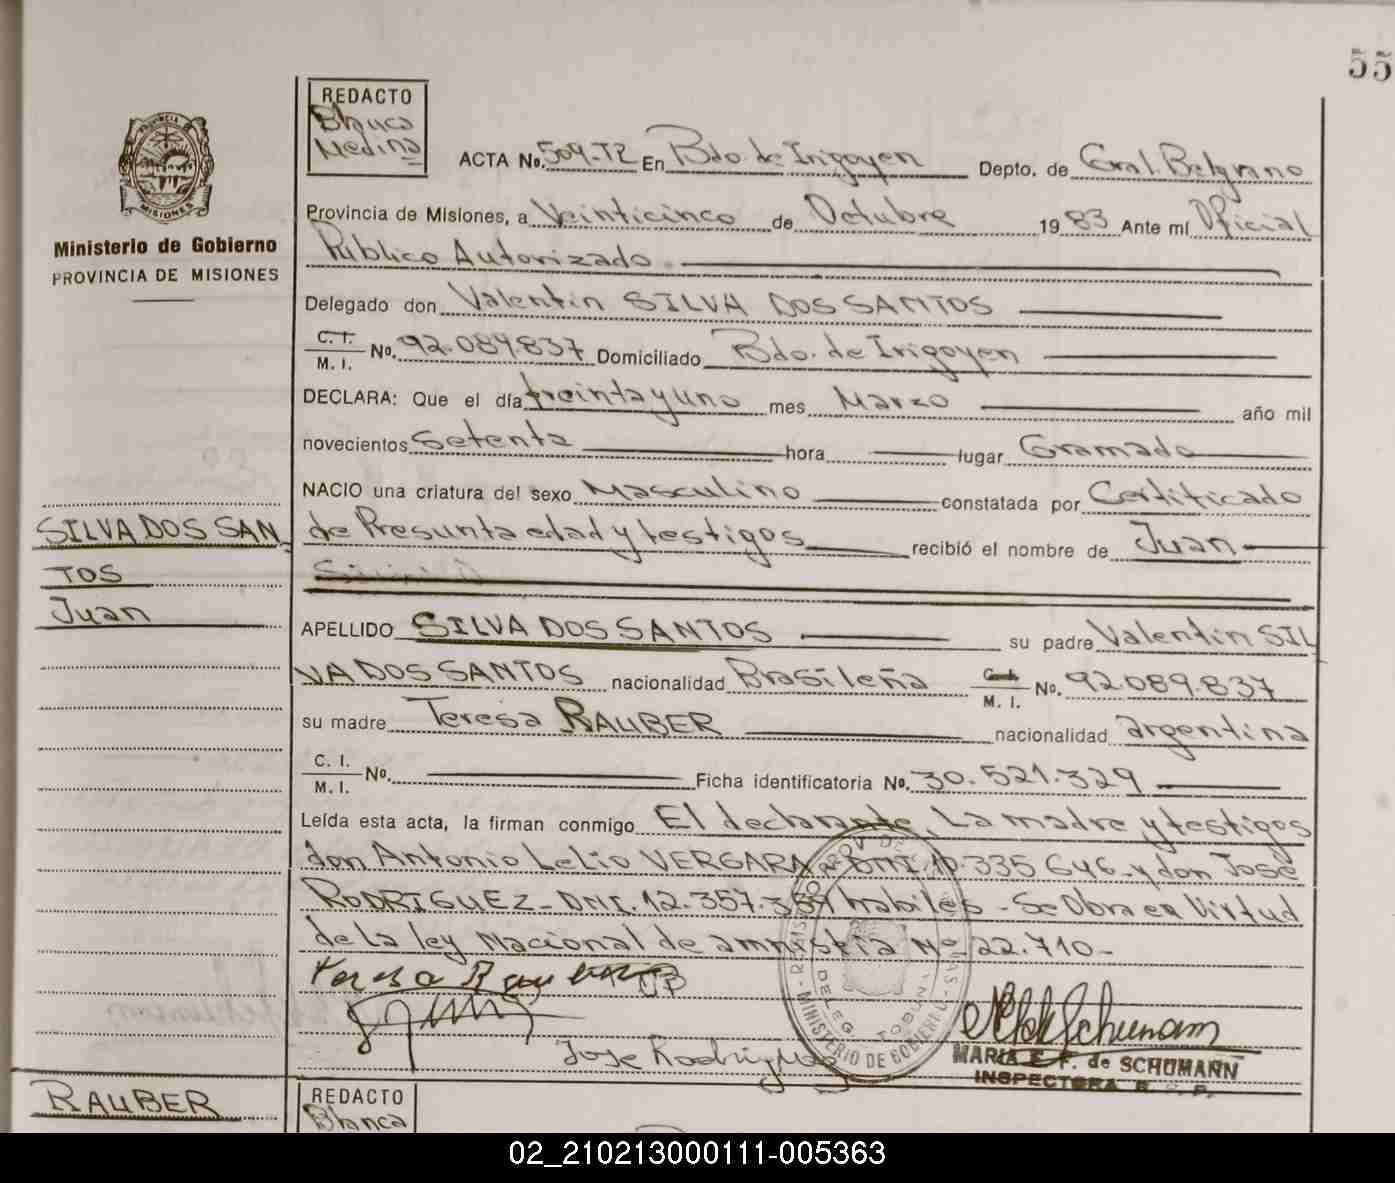 55
REDACTO
Blanca
Medina
ACTA No. 509-T2 En Bdo. de Irigoyen Depto. de Gral. Belgrano
PROVINCIA DE
MISIONES
Ministerio de Gobierno
PROVINCIA DE MISIONES
Provincia de Misiones, a Veinticinco de Octubre 1983 Ante mí Oficial
Público Autorizado
Delegado don Valentin SILVA DOS SANTOS
C. I.
M. I. No. 92.089.837 Domiciliado Bdo. de Irigoyen
DECLARA: Que el día treinta y uno mes Marzo año mil
novecientos Setenta hora lugar Gramado
NACIO una criatura del sexo Masculino constatada por Certificado
SILVA DOS SAN_
de Presunta edad y testigos recibió el nombre de Juan
TOS
Juan
APELLIDO SILVA DOS SANTOS su padre Valentin SIL
VA DOS SANTOS nacionalidad Brasileña M. I. No. 92089.837
su madre Teresa RAUBER nacionalidad argentina
C. I.
M. I. No. Ficha identificatoria No. 30.521.329
Leída esta acta, la firman conmigo El declarante, La madre y testigos
don Antonio Lelio VERGARA DNI. 10.335 646-y don José
RODRIGUEZ- DNI. 12.357.389 habiles - Se Obra en Virtud
de La ley Nacional de amnistia No 22.710-
Teresa Rauber
Jose Rodriguez
MINISTERIO DE GOBIERNO
MARIA E. F. de SCHUMANN
INSPECTORA R. P.
RAUBER
REDACTO
Blanca
02_210213000111-005363